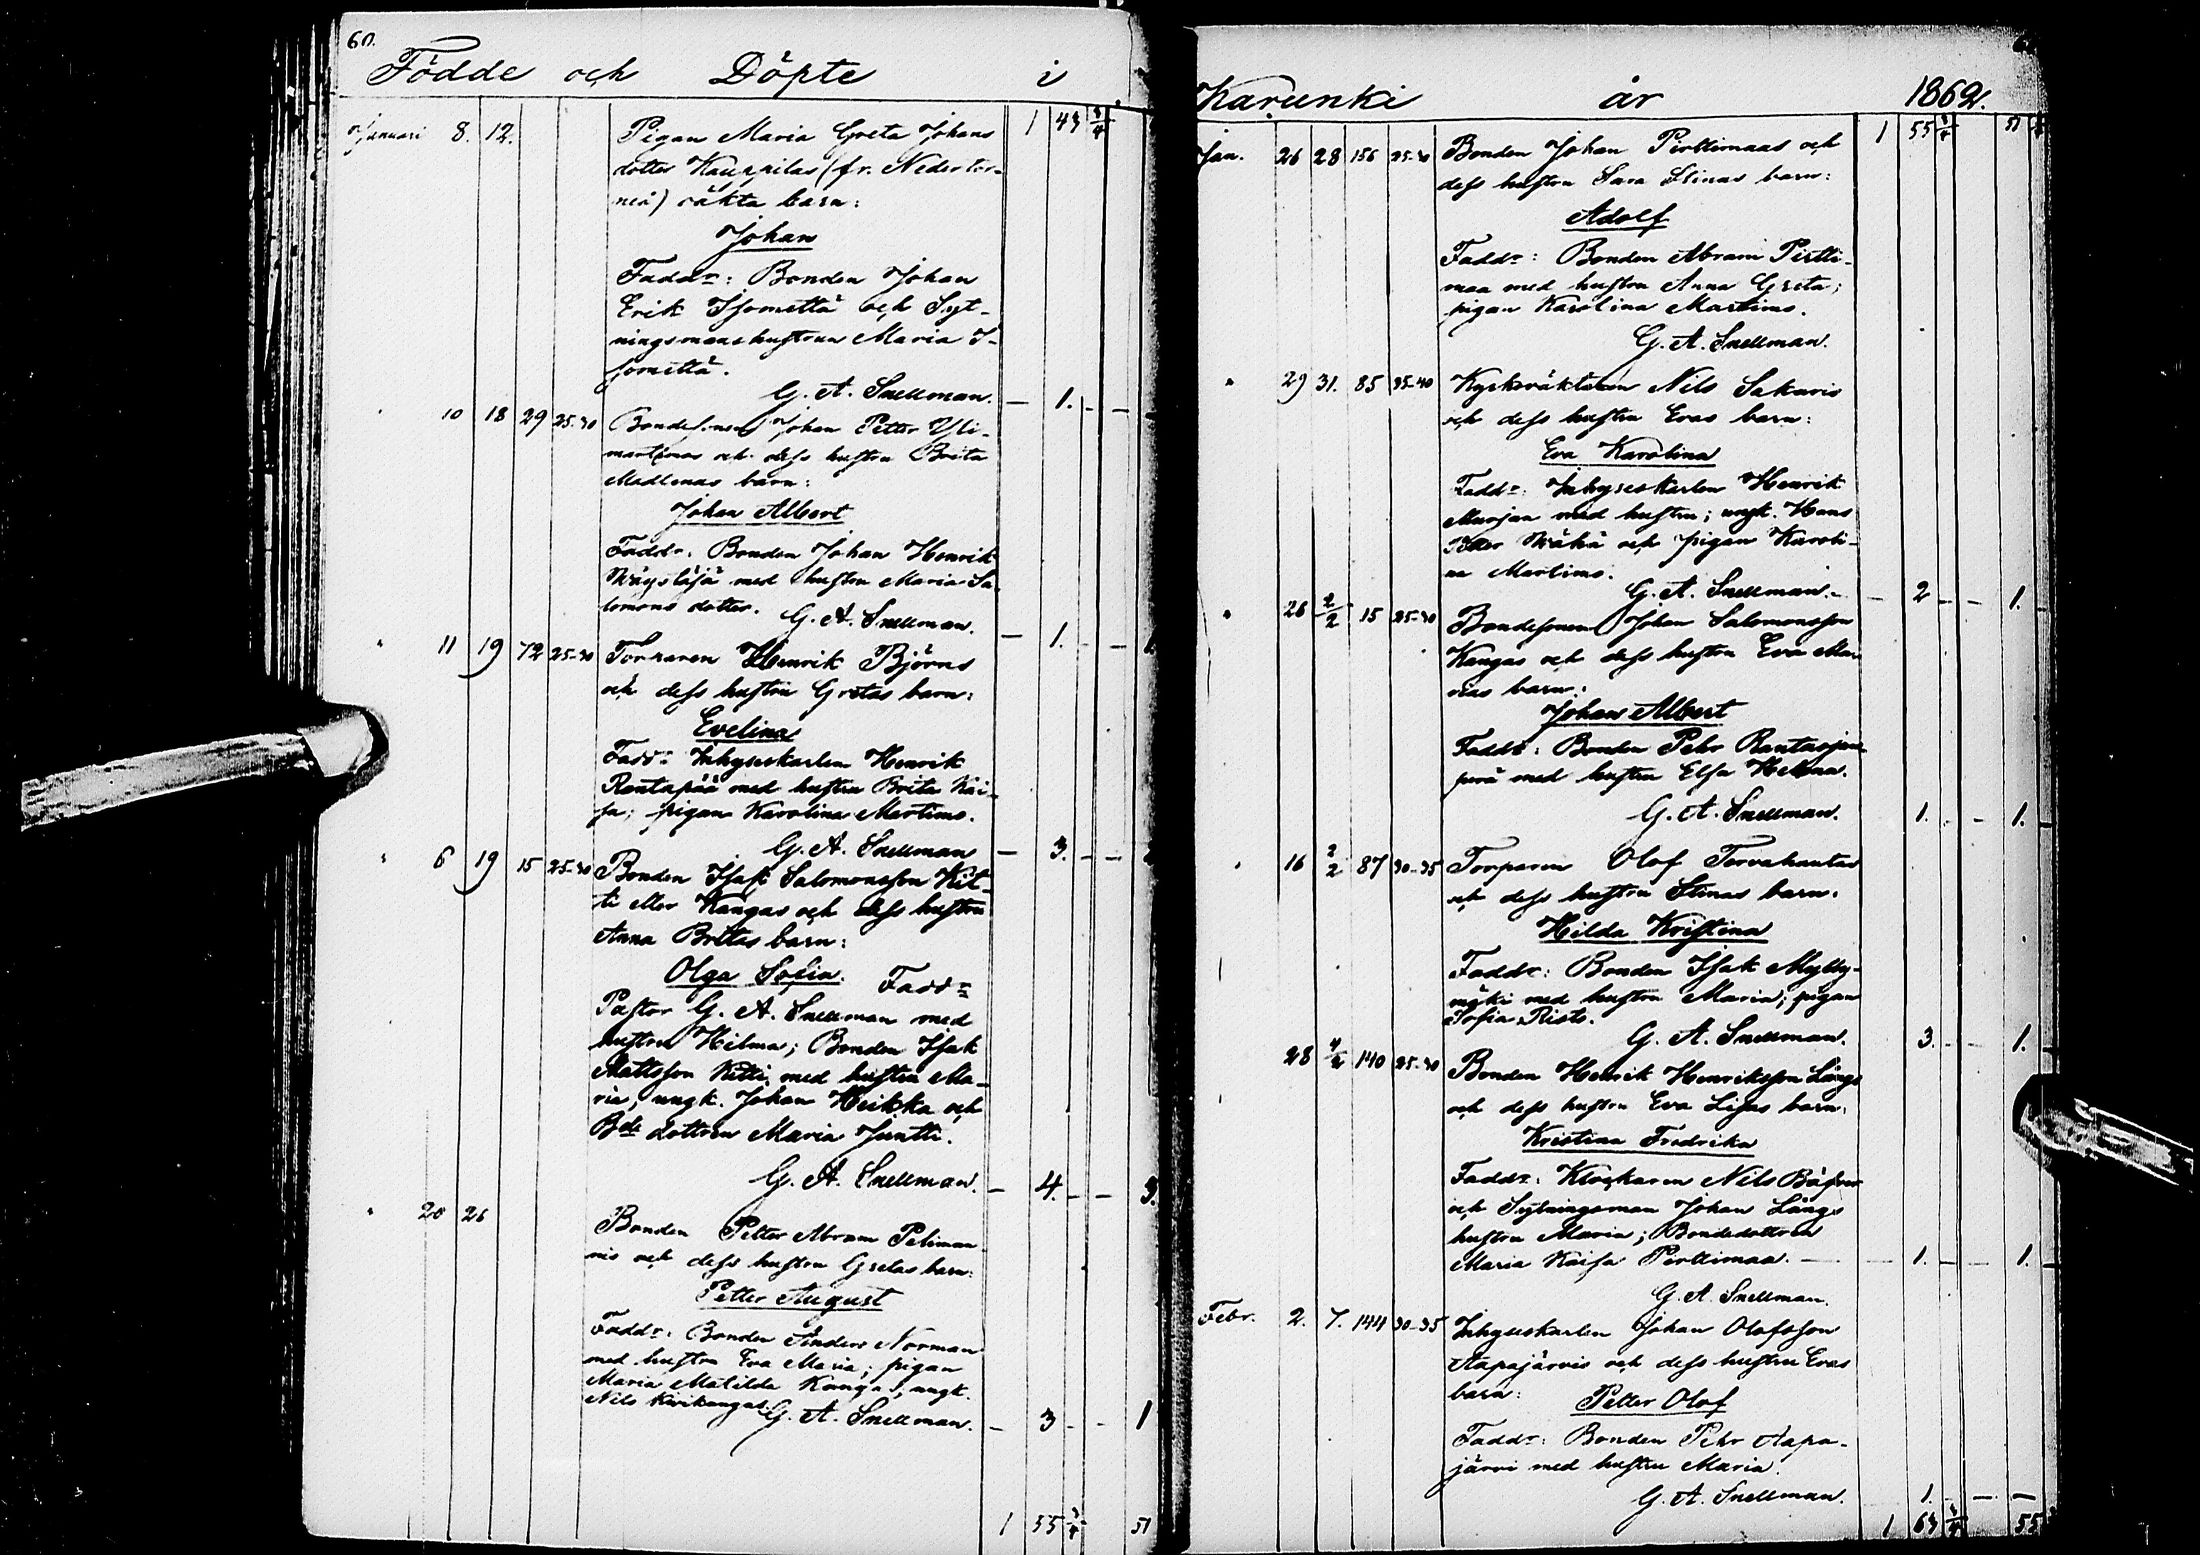 60.
Födde och Döpte i
Januari 8. 12. Pigan Maria Greta Johans 1 43 3/4
dotter Kauppilas (fr. Nedertor-
neå) oäkta barn:
Johan
Faddr: Bonden Johan
Erik Isomettä och Syt-
ningsmanshustrun Maria I-
somettä.
G. A. Snellman. — 1. — —
" 10 18 29 25-30 Bondesonen Johan Petter Yli-
martimos och dess hustru Brita
Madlenas barn:
Johan Albert
Faddr: Bonden Johan Henrik
med hustru Maria Sa-
lomons dotter.
G. A. Snellman. — 1. — —
" 11 19 72 25-30 Torparen Henrik Björns
och dess hustru Gretas barn:
Evelina
Faddr: Inhyseskarlen Henrik
Rantapää med hustru Brita Kai-
sa; pigan Karolina Martimo.
G. A. Snellman — 3. — —
" 6 19 15 25-30 Bonden Isak Salomonsson Kit-
ti eller Kangas och dess hustru
Anna Britas barn:
Olga Sofia. Faddr
Pastor G. A. Snellman med
hustru Hilma; Bonden Isak
Mattsson Kitti med hustru Ma-
ria, ungk. Johan Heikka och
Bde dottren Maria Juntti.
G. A. Snellman. — 4. — — 3.
" 20 26 Bonden Petter Abram Peliman-
nis och dess hustru Gretas barn:
Petter August
Faddr: Bonden Anders Norman
med hustru Eva Maria; pigan
Maria Matilda Kangas, ungk.
Nils Kivikangas.
G. A. Snellman. — 3 — — 1
1 55 3/4 51
Karunki år 1862.
Jan. 26 28 156 25-30 Bonden Johan Pirttimaas och 1 55 3/4 51
dess hustru Sara Stinas barn:
Adolf
Faddr: Bonden Abram Pirtti-
maa med hustru Anna Greta;
pigan Karolina Martimo.
G. A. Snellman.
" 29 31. 85 35-40 Kyrkväktaren Nils Sakaris
och dess hustru Evas barn:
Eva Karolina
Faddr: Inhyseskarlen Henrik
med hustru; ungk. Hans
Petter och pigan Karoli-
na Martimo.
G. A. Snellman. — 2 — — 1.
" 26 2/2 15 25-30 Bondesonen Johan Salomonsson
Kangas och dess hustru Eva Ma-
rias barn:
Johan Albert
Faddr: Bonden Pehr
med hustru Elsa Helena.
G. A. Snellman. 1. — 1.
" 16 2/2 87 30-35 Torparen Olof Tervahautas
och dess hustru Stinas barn:
Hilda Kristina
Faddr: Bonden Isak Mylly-
mäki med hustru Maria; pigan
Sofia Risto.
G. A. Snellman. 3. — — 1.
28 4/2 140 25-30 Bonden Henrik Henriksson Längs
och dess hustru Eva Lisas barn:
Kristina Fredrika
Faddr: Klockaren Nils
och Sytningsman Johan Längs
hustru Maria; Bondedottren
Maria Kaisa Pirttimaa. — 1. — — 1.
G. A. Snellman.
Febr. 2. 7. 144 30-35 Inhyseskarlen Johan Olofsson
Aapajärvis och dess hustru Evas
barn:
Petter Olof
Faddr: Bonden Pehr Aapa-
järvi med hustru Maria.
G. A. Snellman. 1. — —
1 63 3/4 55